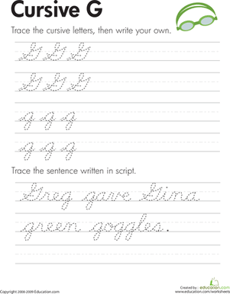 Cursive G
Trace the cursive letters, then write your own.
G G G
G G G
g g g
g g g
Trace the sentence written in script.
Greg gave Gina
green goggles.
education.com